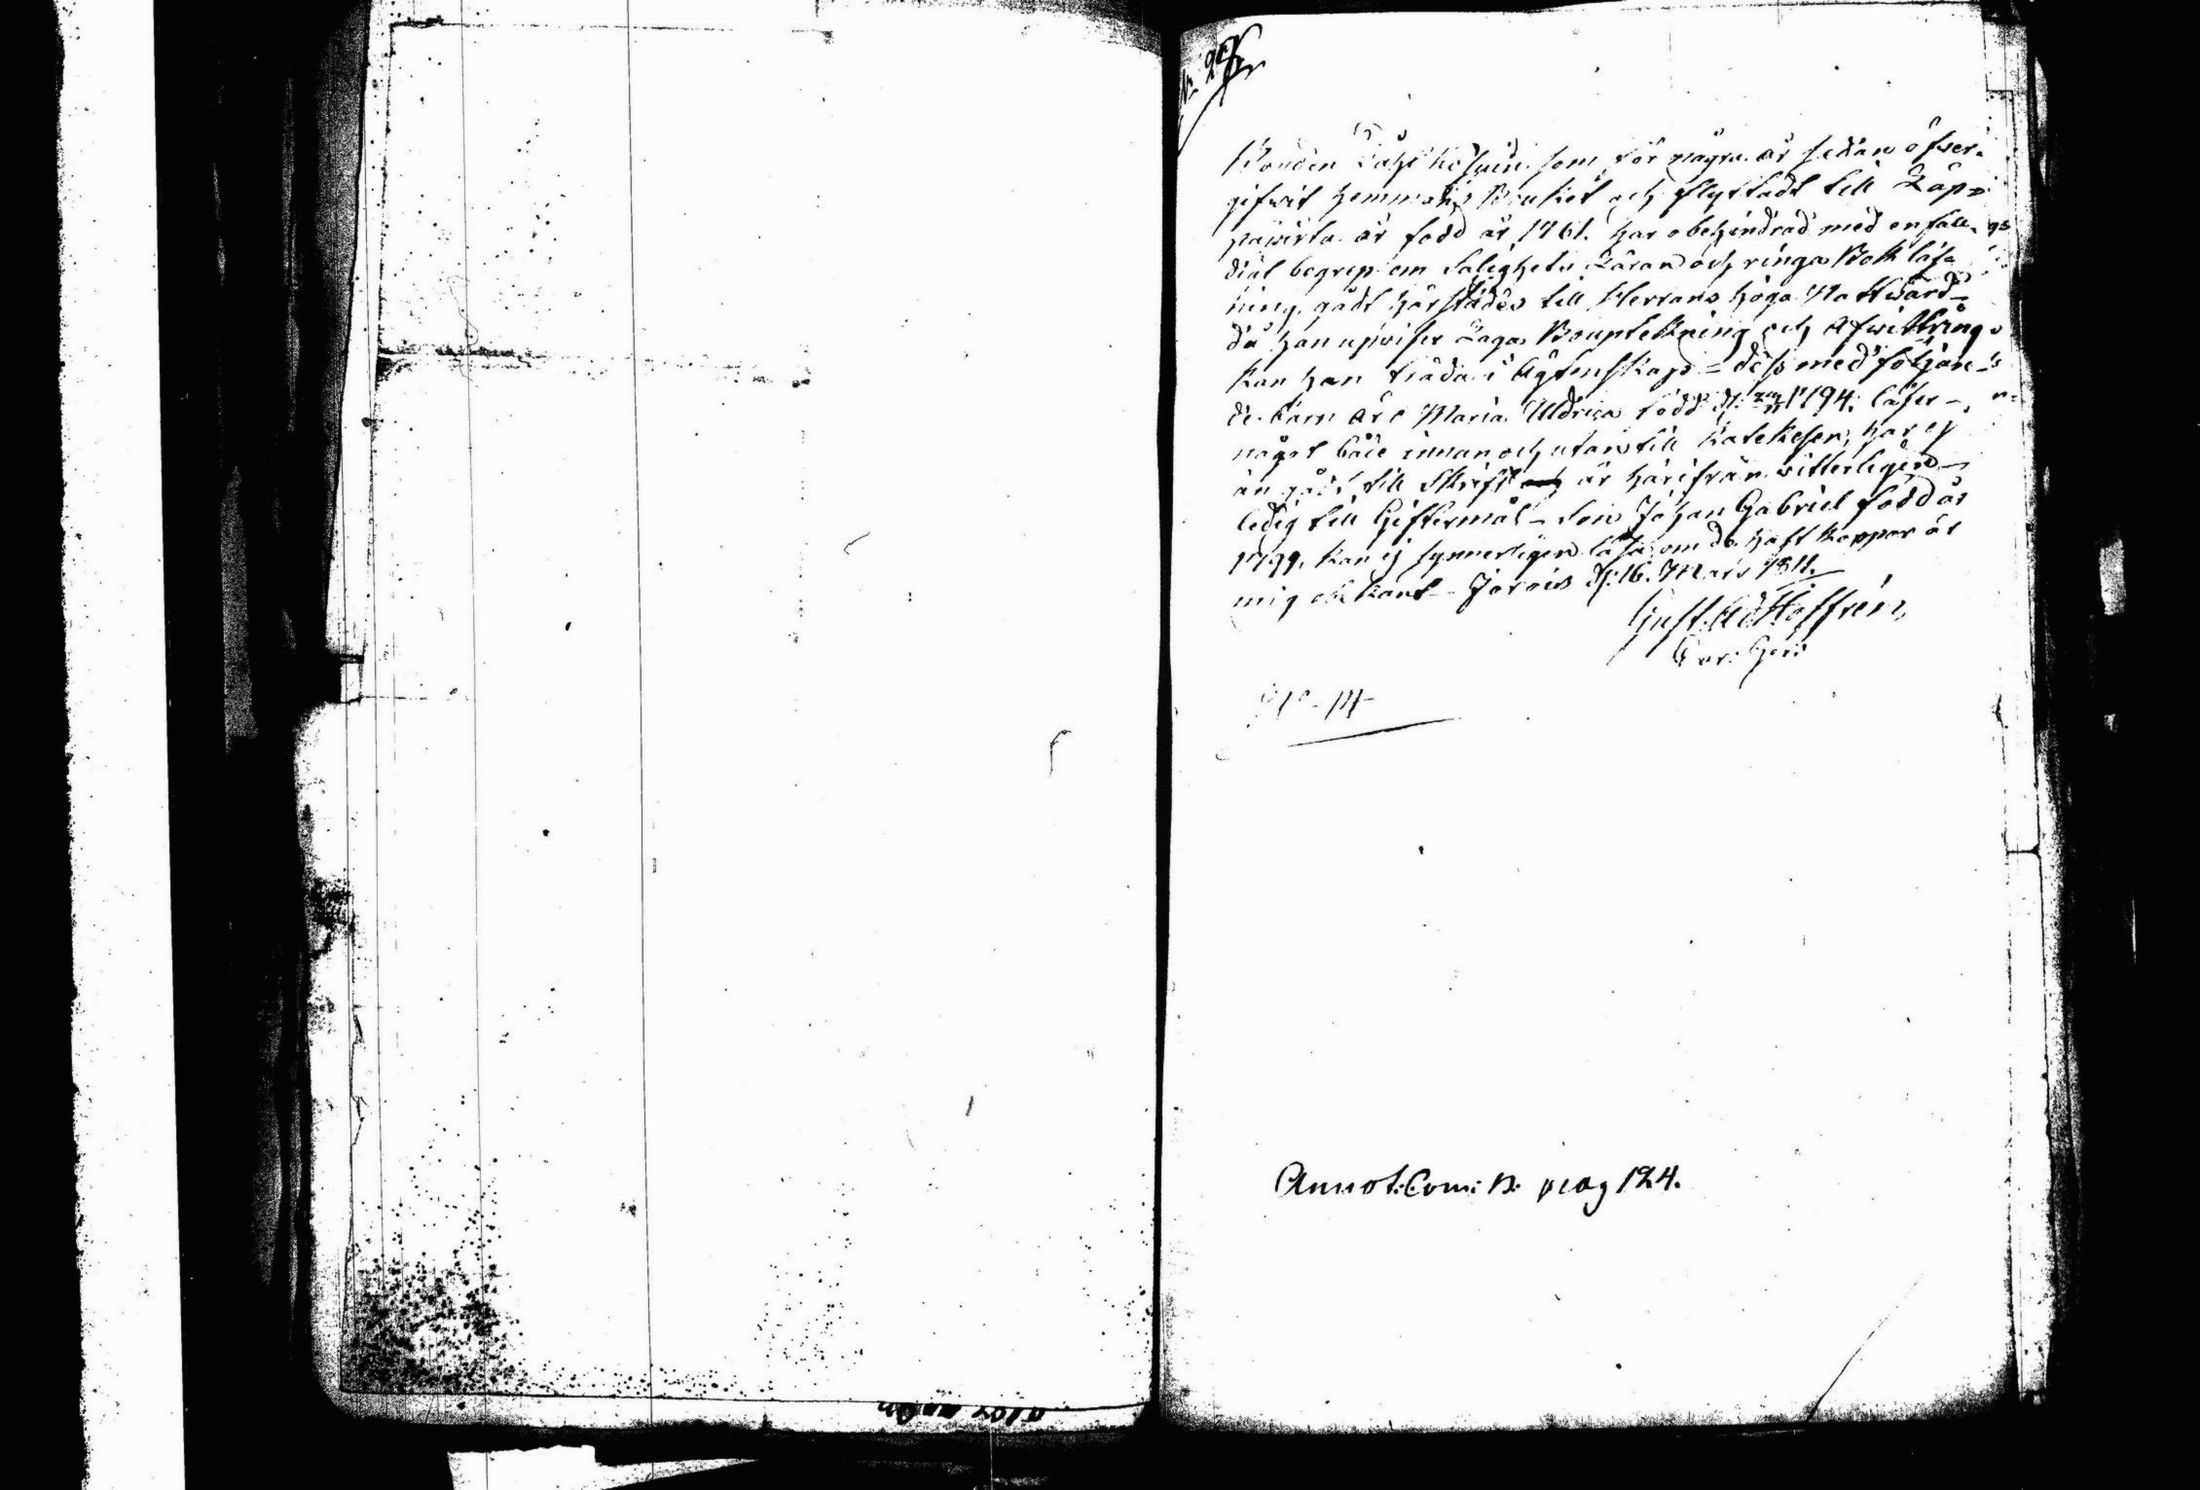 Bonden som för några år sedan öfwer-
gifwit hemmans Bruket och flyttadt till Läp-
pawirta är född år 1761. har obehindrad med enfall-
digt begrep om Salighets Läran och ringa Bok läs-
ning, gådt härstädes till Herrans höga Nattward-
då han upwiser Laga Boupteckning och Afwittring
kan han träda i Ägtenskap = dess med följan-
de barn äro Maria Uldrica född d: 1794. läser -
något både innan och utan till Katekesen, har ej
än gådt till Skrift är härifrån witterligen
ledig till Giftermål - Son Johan Gabriel född år
1799, kan ej synnerligen läsa, om de haft koppor är
mig okändt - Jorois d: 16. Mars 1811.
Gust: Ad Hoffrén,
Annot: Com: B: pag 124.